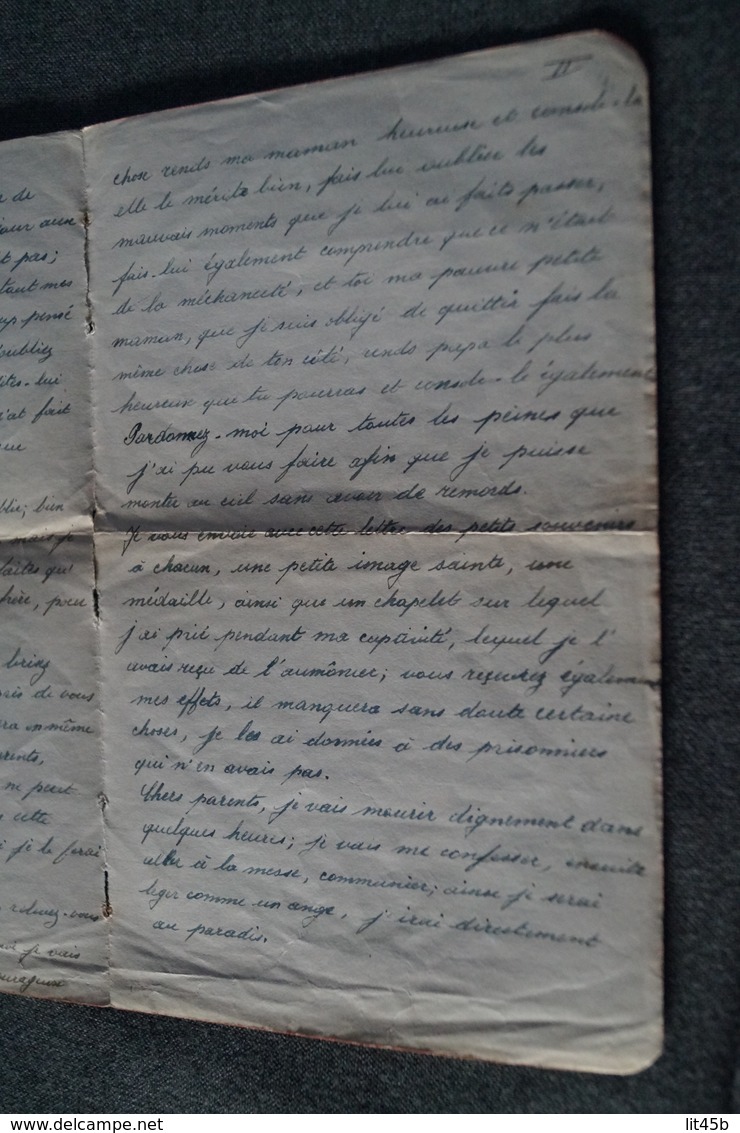 II
chose rends ma maman heureuse et console-la
elle le mérite bien, fais lui oublier les
mauvais moments que je lui ai faits passer,
fais-lui également comprendre que ce n'était
de la méchanceté, et toi ma pauvre petite
maman, que je suis obligé de quitter fais la
même chose de ton côté, rends papa le plus
heureux que tu pourras et console-le également
Pardonnez-moi pour toutes les peines que
j'ai pu vous faire afin que je puisse
monter au ciel sans avoir de remords.
Je vous envoie avec cette lettre des petits souvenirs
à chacun, une petite image sainte, une
médaille, ainsi que un chapelet sur lequel
j'ai prié pendant ma captivité, lequel je l'
avais reçu de l'aumônier; vous reçevrez également
mes effets, il manquera sans doute certaine
choses, je les ai données à des prisonniers
qui n'en avais pas.
Chers parents, je vais mourir dignement dans
quelques heures; je vais me confesser, ensuite
aller à la messe, communier; ainsi je serai
leger comme un ange, j'irai directement
au paradis.
de
pas;
tant mes
pensé
oubliez
dites-lui
fait
bien
mais je
faites qu'
pour
près de vous
en même
ne peut
cette
je le ferai
relevez-vous
je vais
www.delcampe.net
lit45b